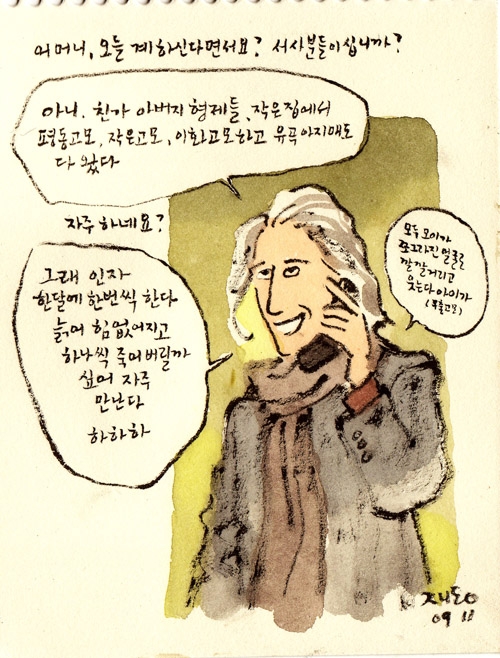 어머니, 오늘 계 하신다면서요? 서사분들이십니까?
아니. 친가 아버지 형제들, 작은집에서
평동고모, 작은고모, 이화고모하고 유곡아지매도
다 왔다
자주 하네요?
모두 모이가
쪼그라진 얼굴로
깔깔거리고
웃는다 아이가
그래 인자
한달에 한번씩 한다
늙어 힘 없어지고
하나씩 죽어버릴까
싶어 자주
만난다
하하하
09 11